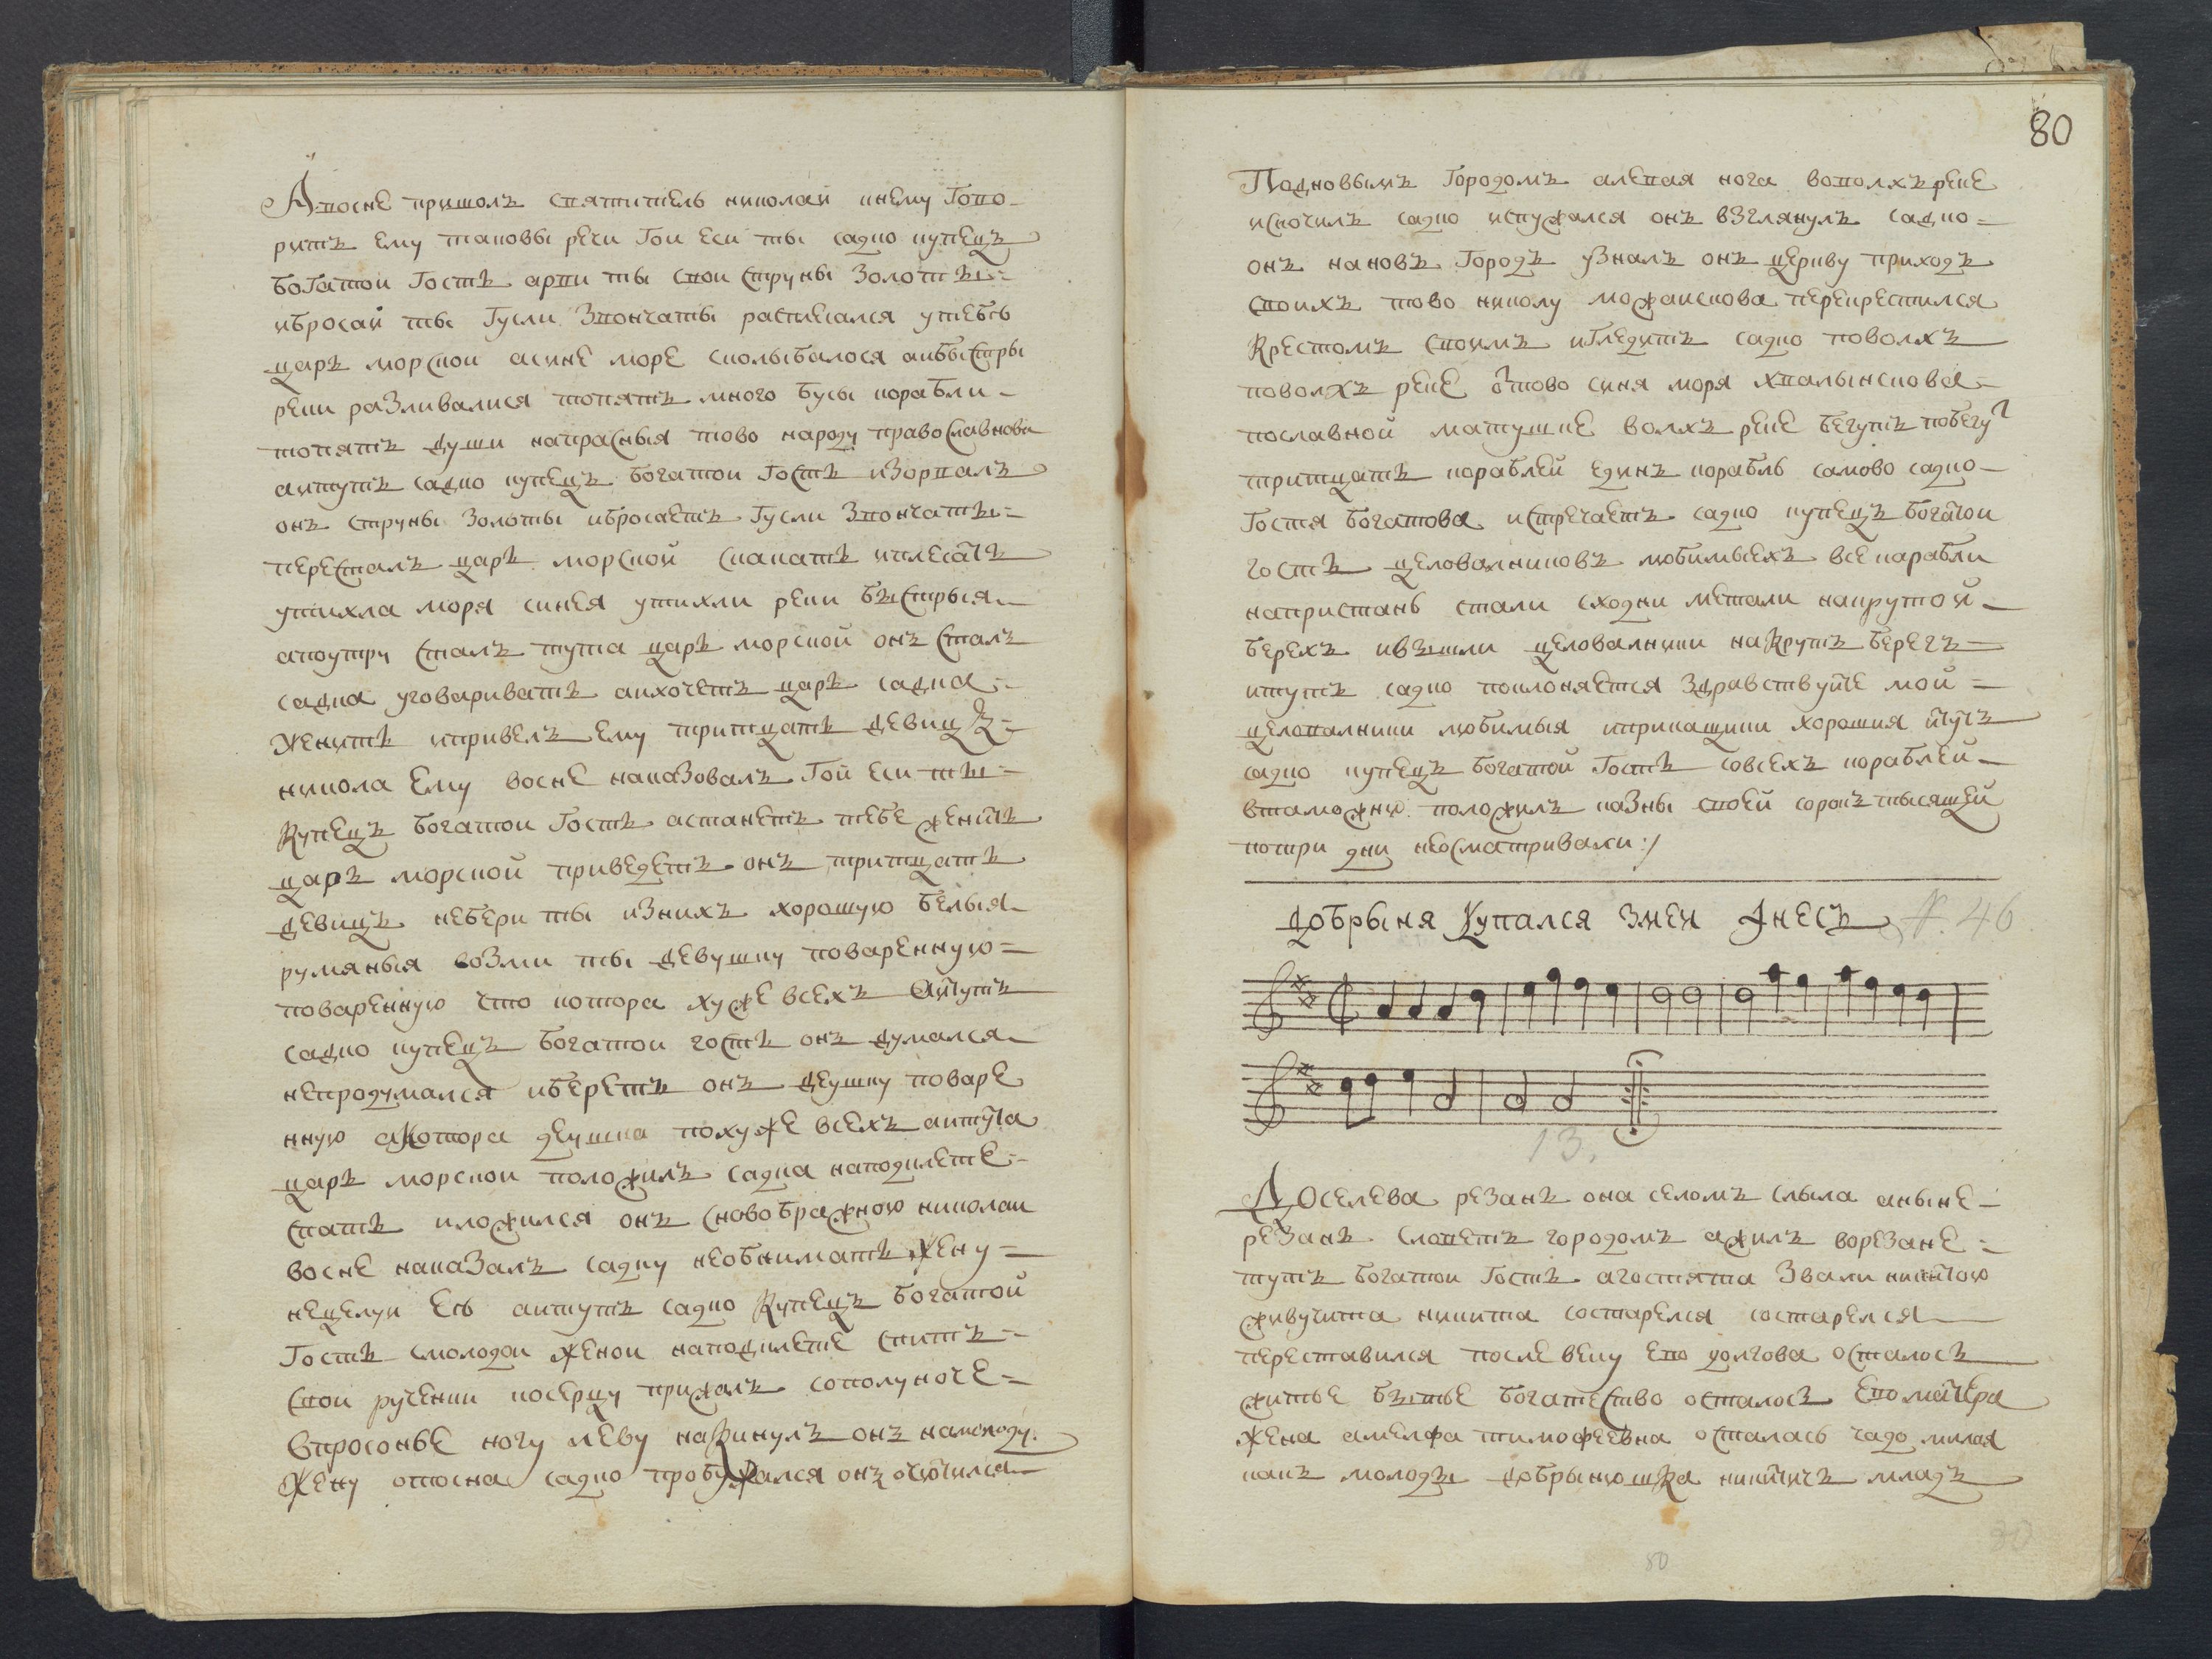 Апосне пришолъ святитель николай кнему Гово-
ритъ ему таковы речи Гои еси ты садко купецъ
богатои Гость арви ты свои струны золоты-
ибросай ты Гусли Звончаты расплесался утебѣ
царь морскои асине море сколыбалося аибыстры
реки разливалися топятъ много бусы корабли-
топятъ души напрасныя тово народу православнова
аитутъ садко купецъ богатои гость изорвалъ
онъ струны золоты ибросаетъ Гусли Звончаты-
пересталъ царь морской скакать иплесать
утихла моря синея утихли реки быстрыя-
апоутру сталъ тута царь морской онъ сталъ
садка уговаривать аихочетъ царь садка-
женить ипривелъ ему тритцать девицъ-
никола ему восне наказовалъ Гой еси ты-
Купецъ богатои Гость астанетъ тебе женить
царь морской приведетъ онъ тритцать
девицъ небери ты изнихъ хорошую белыя-
румяныя возми ты девушку поваренную-
поваренную что котора хуже всехъ аитутъ
садко купецъ богатои гость онъ думался-
непродумался иберетъ онъ деушку поваре
нную акотора деушка похуже всехъ аитута
царь морскои положилъ садка наподклете-
спать иложился онъ сновобрачною николаи
восне наказалъ садку необнимать жену-
нецелуи еѣ аитутъ садко Купецъ богатой
Гость смолодои женои наподклете спитъ-
свои рученки косерцу прижалъ сополуноче-
Впросонье ногу леву накинулъ онъ намолоду
жену отосна садко пробужался онъ очютился
80
Подновымъ Городомъ алевая нога воволхъ реке
искочилъ садко испужался онъ взглянулъ садко-
онъ нановъ Городъ узналъ онъ церкву приходъ
своихъ тово николу можаискова перекрестился
Крестомъ своимъ игледитъ садко поволхъ
поволхъ реке отово синя моря хвалынскова-
пославной матушке волхъ реке бегутъ побегут
тритцать кораблей единъ корабль самово садко-
Гостя богатова истречаетъ садко купецъ богатои
гость целовалниковъ любимыехъ все карабли
напристань стали сходни метали накрутой-
берехъ ивышли целовалники наКрутъ берегъ-
итутъ садко поклоняется здравствуйте мой-
целовалники любимыя иприкащики хорошия итутъ
садко купецъ богатой Гость совсехъ кораблей-
втаможню положилъ казны своей сорокъ тысящей
потри дни неосматривали:/
добрыня Купался змеи унесъ № 46
13.
Доселева резань она селомъ слыла аныне-
резань словетъ городомъ ажилъ ворезане-
тутъ богатои Гость агостята звали никитою
живучита никита состарелся состарелся
переставился после веку ево долгова осталось
житье бытье богатество осталось ево матера
жена амелфа тимофеевна осталась чадо милая
какъ молоды добрынюшка никитичь младъ
80
80